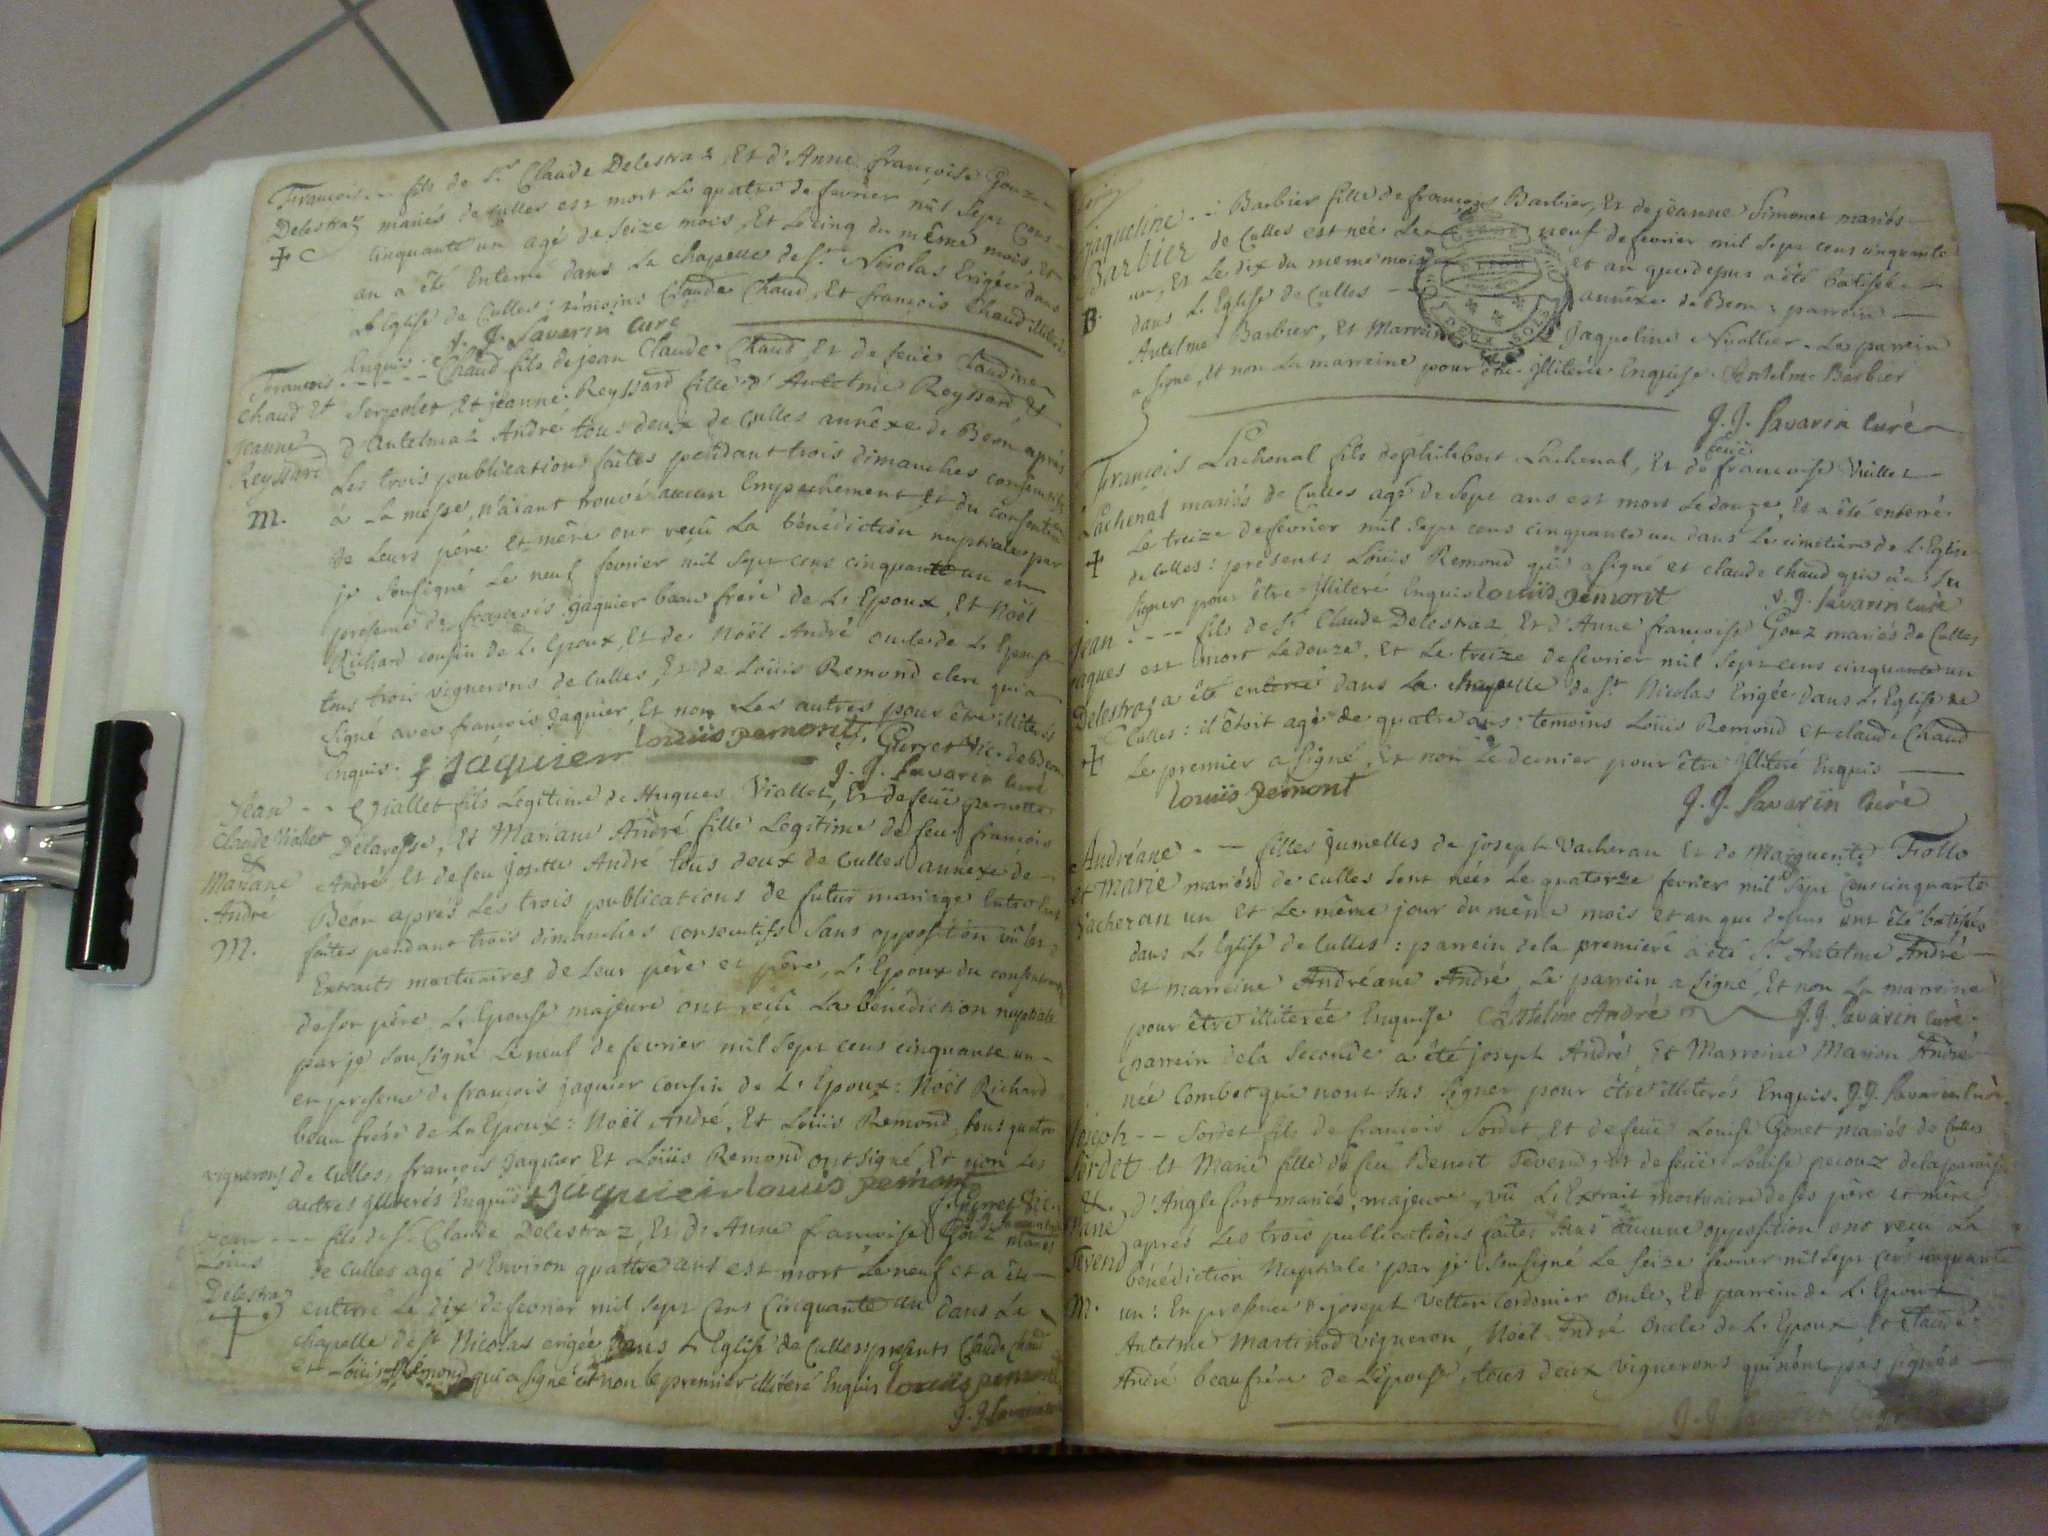 François -- fils de Sr Claude Delestraz, Et d'Anne françoise Gouz
Delestraz mariés de Culles est mort Le quatre de fevrier mil Sept cens
cinquante un agé de Seize mois, Et Le cinq du même mois, et
an a été Enterré dans La chapelle de St Nicolas Erigée dans
L'Eglise de Culles; témoins Claude Chaud, Et françois Chaud
Enquis. J. J. Savarin Curé
François ----- Chaud fils de jean Claude Chaud, Et de feüe Claudine
Chaud Et Serpolet Et jeanne Reyssard fille d'Antelme Reyssard Et
jeanne d'Antelmaz André tous deux de Culles annêxe de Beon après
Reyssard Les trois publications faites pendant trois dimanches
M. à La messe, n'aïant trouvé aucun Empechement Et du
de Leurs père Et mère ont reçû La bénédiction nuptiale par
je Sousigné Le neuf fevrier mil Sept cens cinquante un en
presence de françois jaquier beau frère de L'Epoux, Et Noël
Richard cousin de L'Epoux, Et de Noël André oncle de L'Epouse
tous trois vignerons de Culles, Et de Loüis Remond clerc qui a
Signé avec françois jaquier, Et non Les autres pour être illiterés
Enquis. f jaquier louuis remont
J. J. Savarin Curé
Jean -- Viallet fils Legitime de Hugues Viallet, Et de feüe pernette
Claude Viallet
& Et Mariane André fille Legitime de feu françois
Mariane André Et de feu Josette André tous deux de Culles annexe de
André Béon après Les trois publications de futur mariage
M. faites pendant trois dimanches consecutifs Sans opposition vû les
Extraits mortuaires de Leur père et père, L'Epoux du
de son père L'Epouse majeure ont reçû La bénédiction nuptiale
par je Sousigné Le neuf de fevrier mil Sept cens cinquante un
en presence de françois jaquier cousin de L'Epoux: Noël Richard
beau frère de L'Epoux: Noël André, Et Loüis Remond, tous quatre
vignerons de Culles, françois jaquier Et Loüis Remond ont signé Et non Les
autres illiterés Enquis f jaquier louuis remont
Jean --- fils de Sr Claude Delestraz, Et d'Anne françoise Gouz mariés
Loüis de Culles agé d'Environ quattre ans est mort Le neuf et a été
Delestraz enterré Le dix de fevrier mil Sept cens Cinquante un dans La
chapelle de St Nicolas erigée dans L'Eglise de Culles presents Claude Chaud
et Loüis Remond qui a signé et non le premier illiteré Enquis louuis remont
J. J. Savarin
Jaqueline -- Barbier fille de françois Barbier, Et de jeanne Simonet mariés
Barbier de Culles est née Le neuf de fevrier mil Sept cens cinquante
un, Et Le dix du meme mois et an que depus a été batisée
B. dans L'Eglise de Culles annêxe de Beon: parrein
Antelme Barbier, Et Marreine Jaqueline Nuollier. Le parrein
a signé, Et non La marreine pour être illiterée Enquise. Antelme Barbier
J. J. Savarin Curé
François Lachenal fils de philibert Lachenal, Et de feüe françoise Viallet
Lachenal mariés de Culles agé de Sept ans est mort Le douze, Et a été enterré
Le treize de fevrier mil Sept cens cinquante un dans Le cimetière de L'Eglise
de Culles: présents Loüis Remond qui a signé et claude chaud qui n'a Su
signer pour être illiteré Enquis louuis remont J. J. Savarin Curé
Jean ---- fils de Sr Claude Delestraz Et d'Anne françoise Gouz mariés de Culles
jaques est mort Le douze, Et Le treize de fevrier mil Sept cens cinquante un
Delestraz a été enterré dans La chapelle de St Nicolas Erigée dans L'Eglise de
Culles: il étoit agé de quatre ans: temoins Loüis Remond et claude Chaud
Le premier a signé, Et non Le dernier pour être illiteré Enquis
louuis remont J. J. Savarin Curé
Andréane -- filles jumelles de joseph Vacheran Et de Marguerite Trollo
et Marie mariés de Culles Sont nées Le quatorze fevrier mil Sept Cens cinquante
Vacheran un Et Le même jour du même mois et an que dessus ont été batisées
dans L'Eglise de Culles: parrein de la premiere a été Sr Antelme André
et marreine Andréane André, Le parrein a signé, Et non La marreine
pour être illiterée Enquise Antelme André J. J. Savarin Curé
parrein de la Seconde a été joseph André, Et Marreine Marion André
née Combet qui n'ont Sus signer pour être illiterés Enquis. J. J. Savarin Curé
Joseph -- Sordet fils de françois Sordet Et de feüe Louise Gonet mariés de Culles
Sordet Et Marie fille de feu Benoit Tevend, et de feüe Loüise pecouz de la paroisse
& d'Anglefort mariés, majeure, vû L'Extrait mortuaire de ses père et mère
après Les trois publications faites Sans aucune opposition ont reçû La
Tevend bénédiction Nuptiale par je Sousigné Le Seize fevrier mil Sept Cens cinquante
M. un: En presence de joseph Vetter Cordonier oncle, Et parrein de L'Epoux
Antelme Martinod vigneron, Noël André Oncle de L'Epoux Et Claude
André beaufrère de L'Epouse, tous deux vignerons qui n'ont pas signés
J. J. Savarin Curé